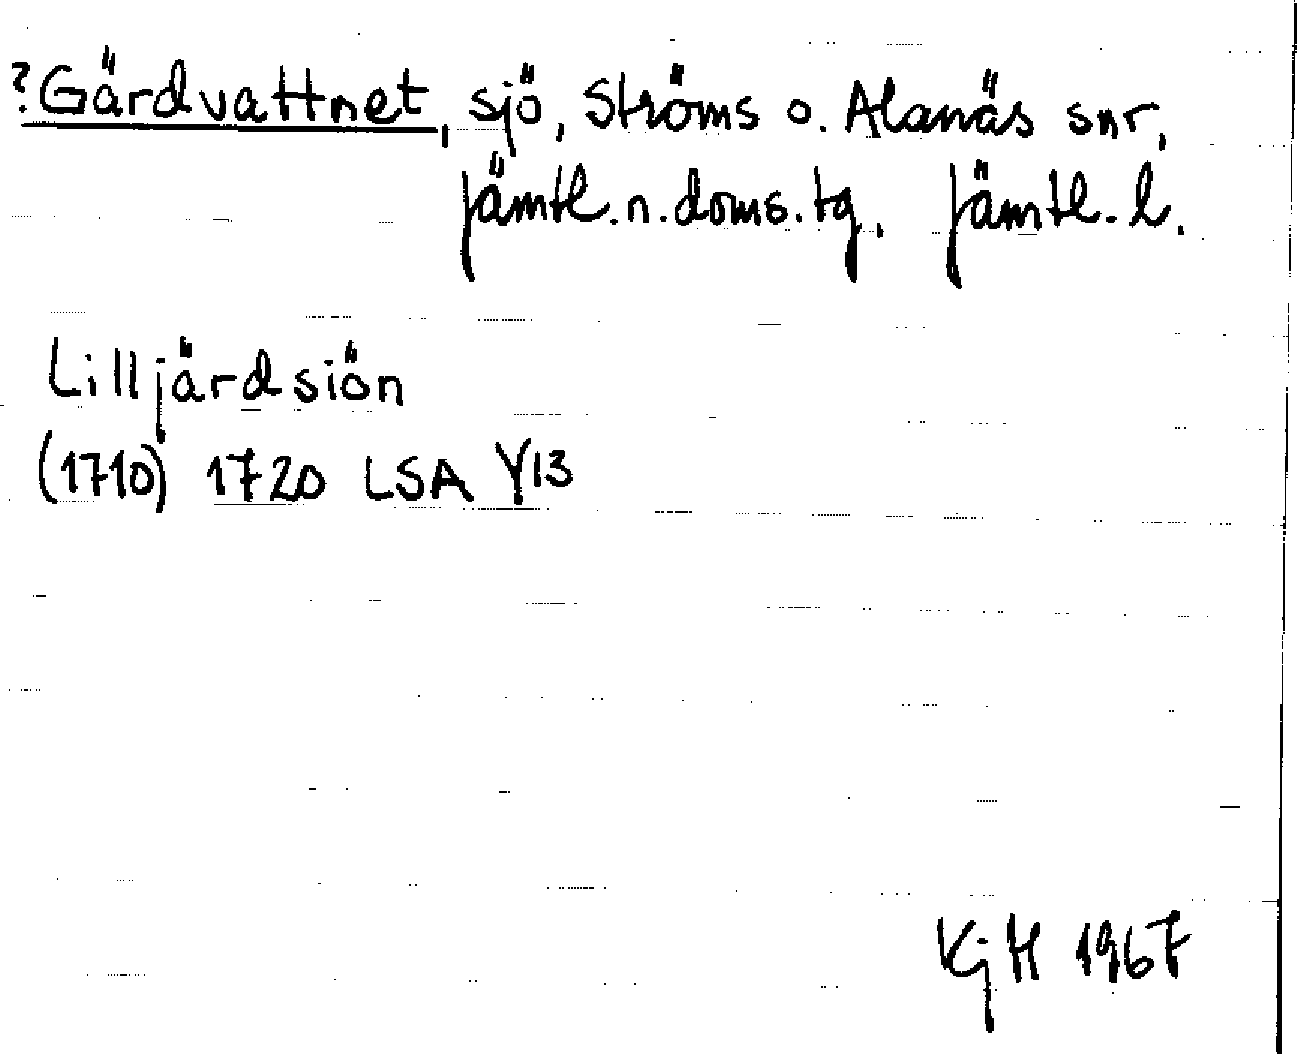 ?Gärdvattnet, sjö, Ströms o. Alanäs snr,
Jämtl.n.doms.tg. Jämtl.l.
Lilljärdsiön
(1710) 1720 LSA Y13
KjH 1967